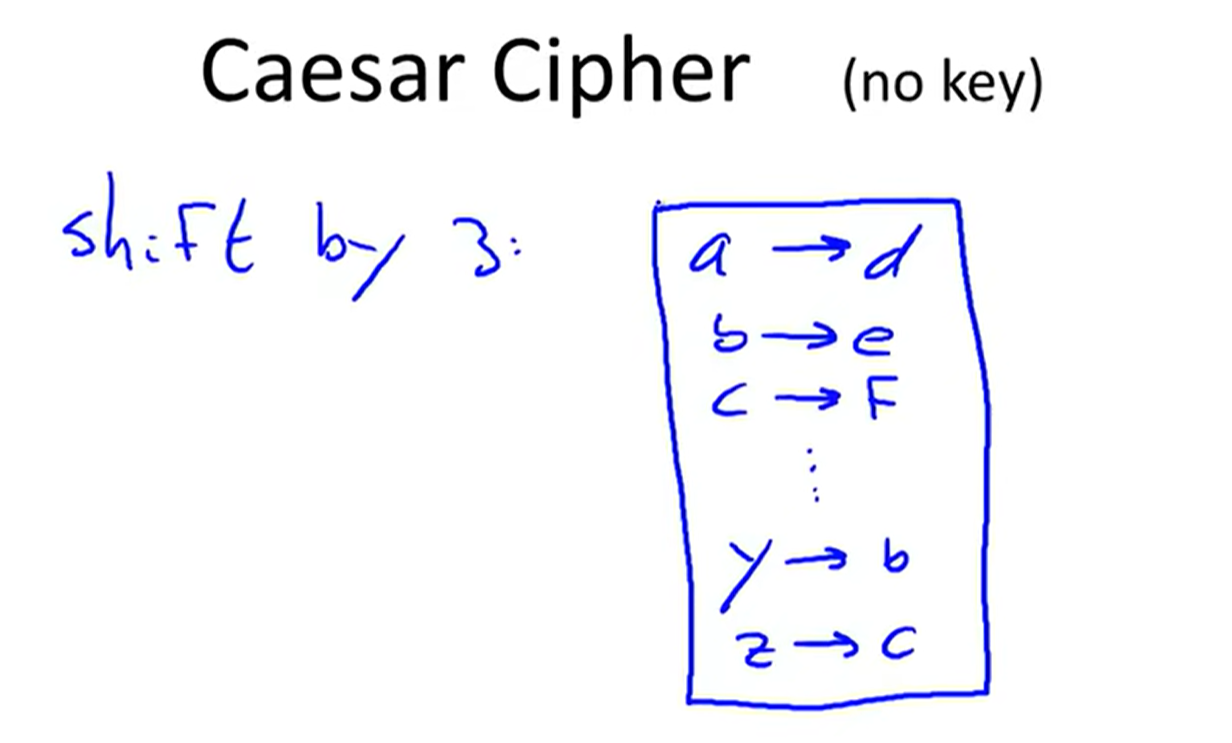 Caesar Cipher (no key)
shift by 3:
a → d
b → e
c → F
⋮
y → b
z → c